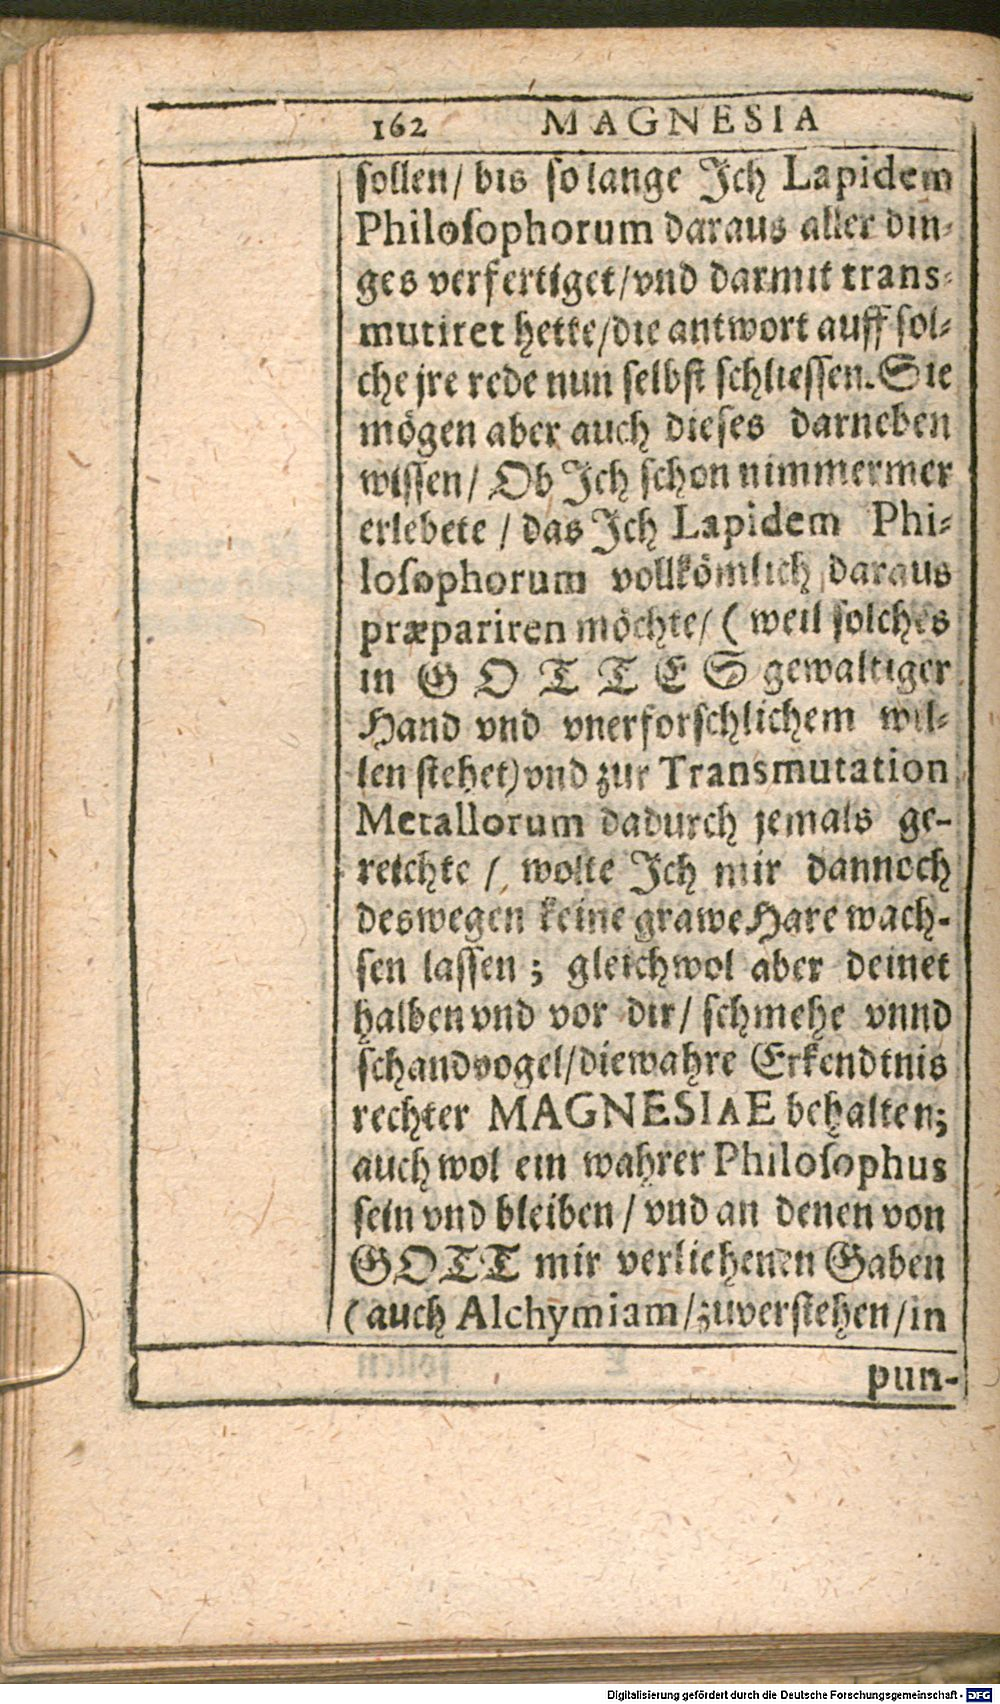 162 MAGNESIA
sollen/ bis so lange Ich Lapidem
Philoſophorum daraus aller din⸗
ges verfertiget/vnd darmit trans⸗
mutiret hette/die antwort auff sol⸗
che jre rede nun selbst schliessen. Sie
mögen aber auch dieses darneben
wissen/ Ob Ich schon nimmermer
erlebete / das Ich Lapidem Phi⸗
loſophorum vollkömlich daraus
præpariren möchte/ ( weil solches
in GOTTES gewaltiger
Hand vnd vnerforschlichem wil⸗
len stehet) vnd zur Transmutation
Metallorum dadurch jemals ge-
reichte /, wolte Ich mir dannoch
deswegen keine grawe Hare wach-
sen lassen ; gleichwol aber deinet
halben vnd vor dir/ schmehe vnnd
schandvogel/die wahre Erkendtnis
rechter MAGNESIAE behalten;
auch wol ein wahrer Philoſophus
sein vnd bleiben / vnd an denen von
GOTT mir verliehenen Gaben
(auch Alchymiam/zuverstehen/in
pun-
Digitalisierung gefördert durch die Deutsche Forschungsgemeinschaft - DFG